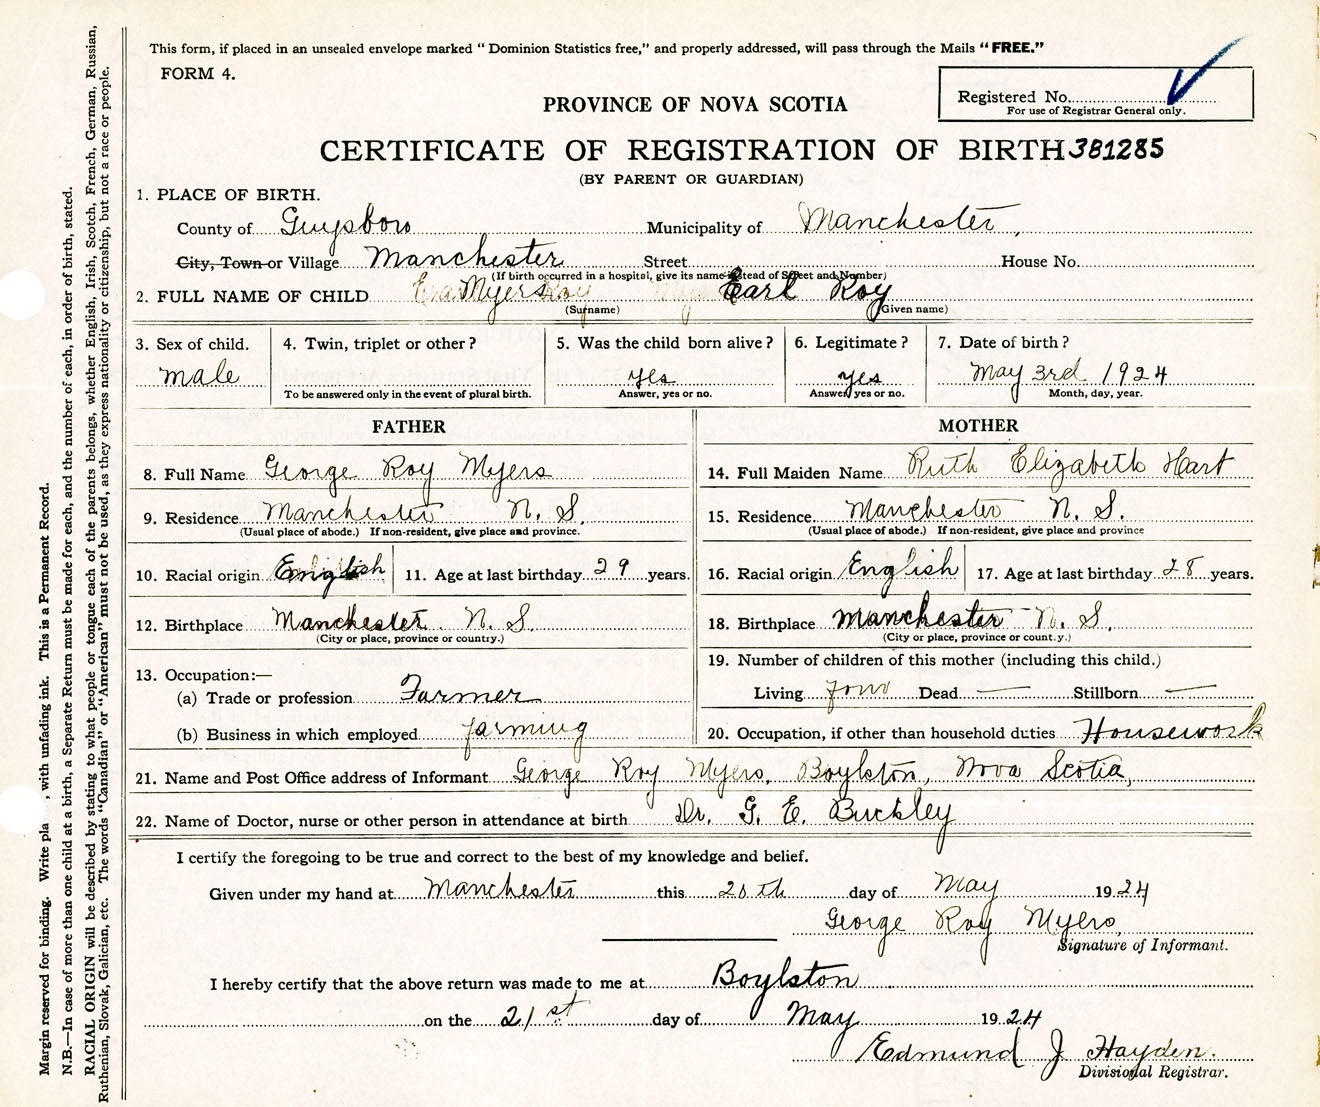 This form, if placed in an unsealed envelope marked “ Dominion Statistics free,” and properly addressed, will pass through the Mails “FREE.”
FORM 4.
Registered No.
For use of Registrar General only.
PROVINCE OF NOVA SCOTIA
CERTIFICATE OF REGISTRATION OF BIRTH 381285
(BY PARENT OR GUARDIAN)
1. PLACE OF BIRTH.
County of Guysboro Municipality of Manchester,
City, Town or Village Manchester Street House No.
(If birth occurred in a hospital, give its name instead of Street and Number)
2. FULL NAME OF CHILD Myers Earl Roy
(Surname) (Given name)
3. Sex of child. 4. Twin, triplet or other? 5. Was the child born alive? 6. Legitimate? 7. Date of birth?
male yes yes May 3rd 1924
To be answered only in the event of plural birth. Answer, yes or no. Answer, yes or no. Month, day, year.
FATHER MOTHER
8. Full Name George Roy Myers 14. Full Maiden Name Ruth Elizabeth Hart
9. Residence Manchester N. S. 15. Residence Manchester N. S.
(Usual place of abode.) If non-resident, give place and province. (Usual place of abode.) If non-resident, give place and province
10. Racial origin English 11. Age at last birthday 29 years. 16. Racial origin English 17. Age at last birthday 28 years.
12. Birthplace Manchester N. S. 18. Birthplace Manchester N. S.
(City or place, province or country.) (City or place, province or count.y.)
13. Occupation:— 19. Number of children of this mother (including this child.)
(a) Trade or profession Farmer Living four Dead — Stillborn —
(b) Business in which employed farming 20. Occupation, if other than household duties Housework
21. Name and Post Office address of Informant George Roy Myers, Boylston, Nova Scotia,
22. Name of Doctor, nurse or other person in attendance at birth Dr. G. E. Buckley
I certify the foregoing to be true and correct to the best of my knowledge and belief.
Given under my hand at Manchester this 20th day of May 1924
George Roy Myers,
Signature of Informant.
I hereby certify that the above return was made to me at Boylston
on the 21st day of May 1924
Edmund J Hayden.
Divisional Registrar.
Margin reserved for binding. Write pla , with unfading ink. This is a Permanent Record.
N.B.—In case of more than one child at a birth, a Separate Return must be made for each, and the number of each, in order of birth, stated.
RACIAL ORIGIN will be described by stating to what people or tongue each of the parents belongs, whether English, Irish, Scotch, French, German, Russian,
Ruthenian, Slovak, Galician, etc. The words “Canadian” or “American” must not be used, as they express nationality or citizenship, but not a race or people.